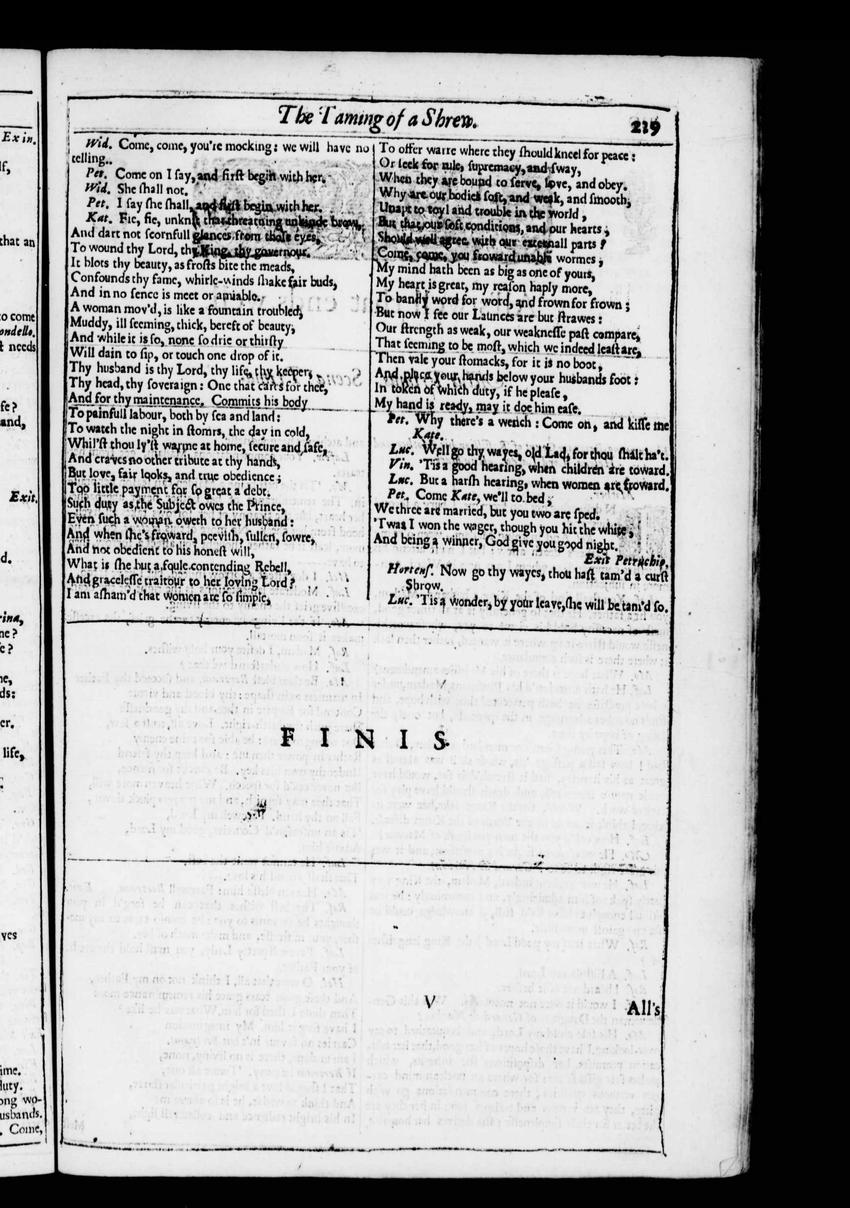 The Taming of a Shrew.
239
Wid. Come, come, you're mocking: we will have no
telling..
Pet. Come on I say, and first begin with her.
Wid. She shall not.
Pet. I say she shall, and first begin with her.
Kat. Fie, fie, unknit that threatning unkinde brow,
And dart not scornfull glances from those eyes,
To wound thy Lord, thy King, thy governour.
It blots thy beauty, as frosts bite the meads,
Confounds thy fame, whirle-winds shake fair buds,
And in no sence is meet or amiable.
A woman mov'd, is like a fountain troubled,
Muddy, ill seeming, thick, bereft of beauty,
And while it is so, none so drie or thirsty
Will dain to sip, or touch one drop of it.
Thy husband is thy Lord, thy life, thy keeper,
Thy head, thy soveraign: One that cares for thee,
And for thy maintenance. Commits his body
To painfull labour, both by sea and land:
To watch the night in stomrs, the day in cold,
Whil'st thou ly'st warme at home, secure and safe,
And craves no other tribute at thy hands,
But love, fair looks, and true obedience;
Too little payment for so great a debt.
Such duty as the Subject owes the Prince,
Even such a woman oweth to her husband:
And when she's froward, peevish, sullen, sowre,
And not obedient to his honest will,
What is she but a foule contending Rebell,
And gracelesse traitour to her loving Lord?
I am asham'd that women are so simple,
To offer warre where they should kneel for peace:
Or seek for rule, supremacy, and sway,
When they are bound to serve, love, and obey.
Why are our bodies soft, and weak, and smooth,
Unapt to toyl and trouble in the world,
But that our soft conditions, and our hearts,
Should well agree with our externall parts?
Come, come, you froward unable wormes,
My mind hath been as big as one of yours,
My heart is great, my reason haply more,
To bandy word for word, and frown for frown;
But now I see our Launces are but strawes:
Our strength as weak, our weaknesse past compare,
That seeming to be most, which we indeed least are,
Then vale your stomacks, for it is no boot,
And place your hands below your husbands foot:
In token of which duty, if he please,
My hand is ready, may it doe him ease.
Pet. Why there's a wench: Come on, and kisse me
Kate.
Luc. Well go thy wayes, old Lad, for thou shalt ha't.
Vin. 'Tis a good hearing, when children are toward.
Luc. But a harsh hearing, when women are froward.
Pet. Come Kate, we'll to bed,
We three are married, but you two are sped.
'Twas I won the wager, though you hit the white,
And being a winner, God give you good night.
Exit Petruchio.
Hortens. Now go thy wayes, thou hast tam'd a curst
Shrow.
Luc. 'Tis a wonder, by your leave, she will be tam'd so.
FINIS.
V
All's
Exin.
that an
to come
ondello.
needs
Exit.
d.
rina,
ne?
ds:
er.
life,
yes
ime.
duty.
ong wo-
usbands.
Come,